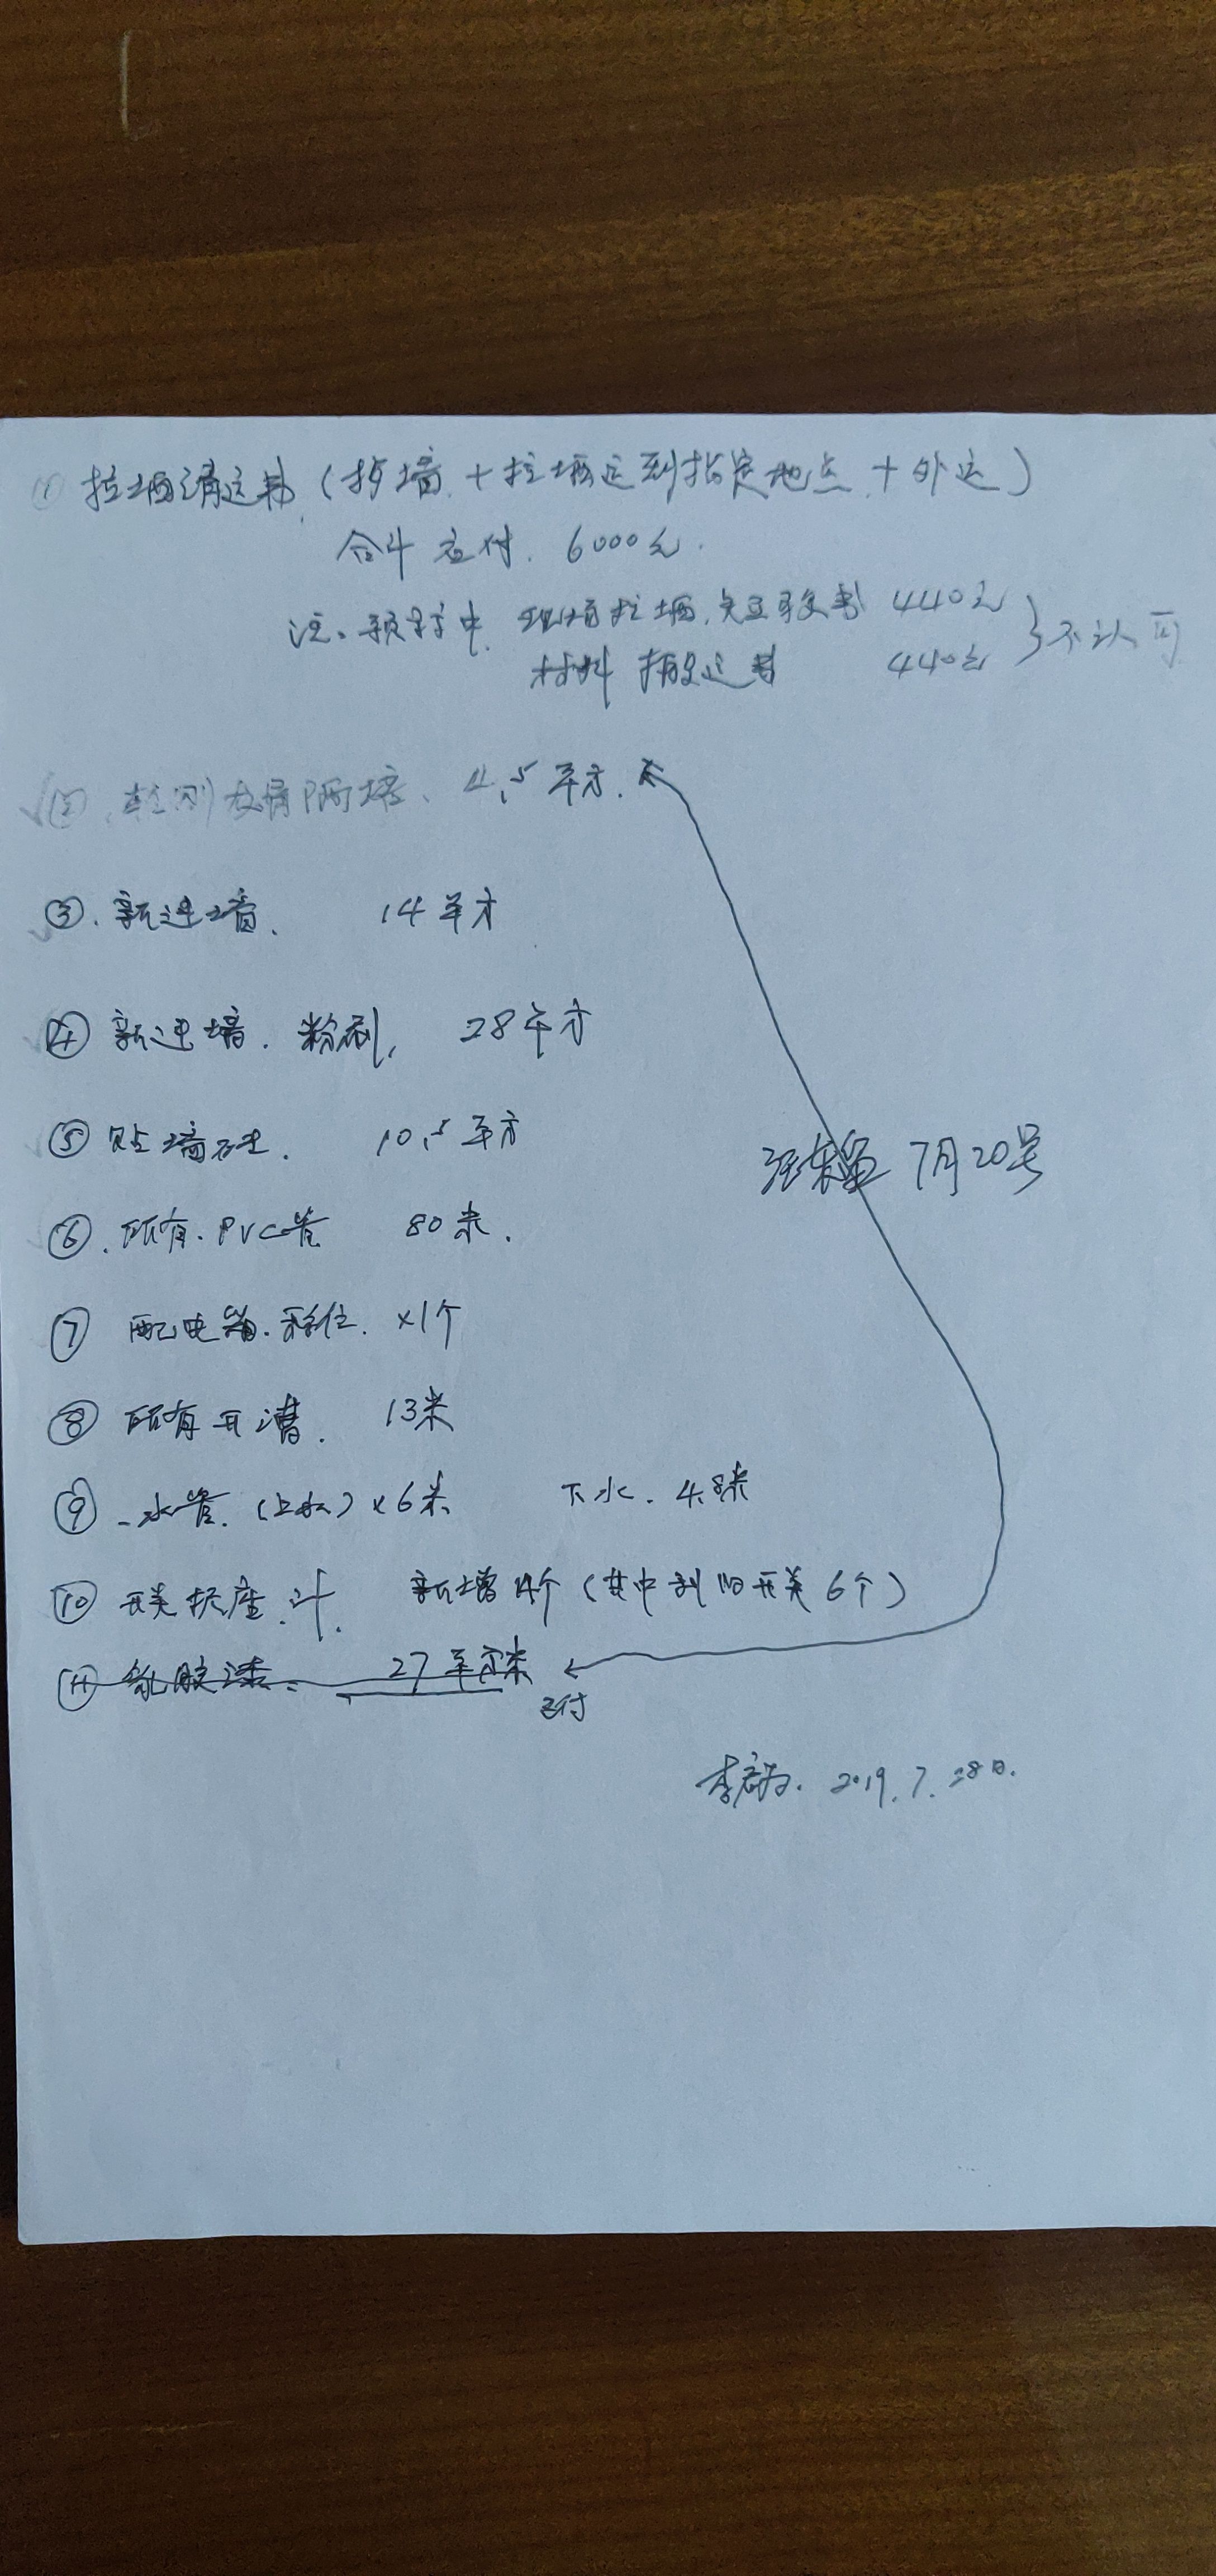 ① 垃圾清运费（拆墙+垃圾运到指定地点+外运）
合计应付.6000元.
注、预算中 现场垃圾 费 440元 } 不认可
材料搬运费 440元
② 轻钢龙骨隔墙、4.5平方.
③.新建墙. 14平方
④新建墙.粉刷, 28平方
⑤贴墙砖. 10.5平方
7月20号
⑥.所有.PVC管 80米.
⑦ 配电箱.移位. ×1个
⑧ 所有开槽. 13米
⑨ 水管.(上水)×6米 下水.4.8米
⑩ 开关插座.计. 新增14个(其中利旧开关6个)
⑪ 乳胶漆. 27平方米
已付
2019.7.28日.